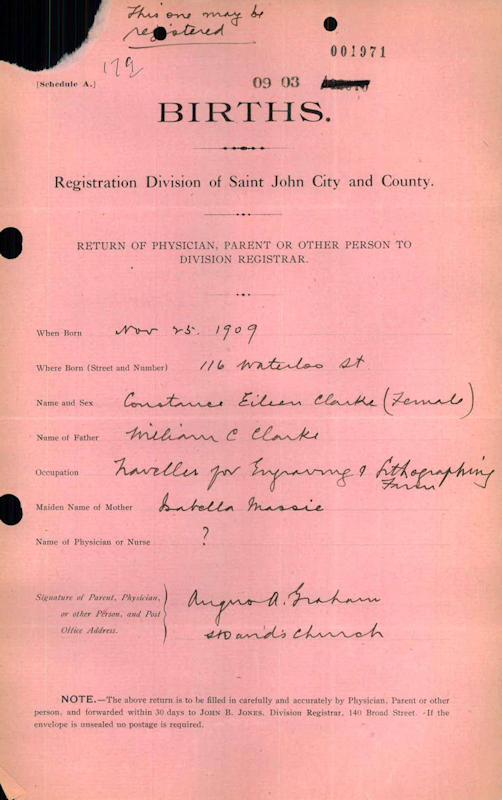 This one may be
registered
001971
179
[Schedule A.]
09 03
BIRTHS.
Registration Division of Saint John City and County.
RETURN OF PHYSICIAN, PARENT OR OTHER PERSON TO
DIVISION REGISTRAR.
When Born Nov 25. 1909
Where Born (Street and Number) 116 Waterloo St
Name and Sex Constance Eileen Clarke (Female)
Name of Father William C Clarke
Occupation Traveller for Engraving & Lithographing
Firm
Maiden Name of Mother Isabella Massie
Name of Physician or Nurse ?
Signature of Parent, Physician, Angus A. Graham
or other Person, and Post
Office Address. St David's Church
NOTE.—The above return is to be filled in carefully and accurately by Physician, Parent or other
person, and forwarded within 30 days to JOHN B. JONES, Division Registrar, 140 Broad Street. -If the
envelope is unsealed no postage is required.